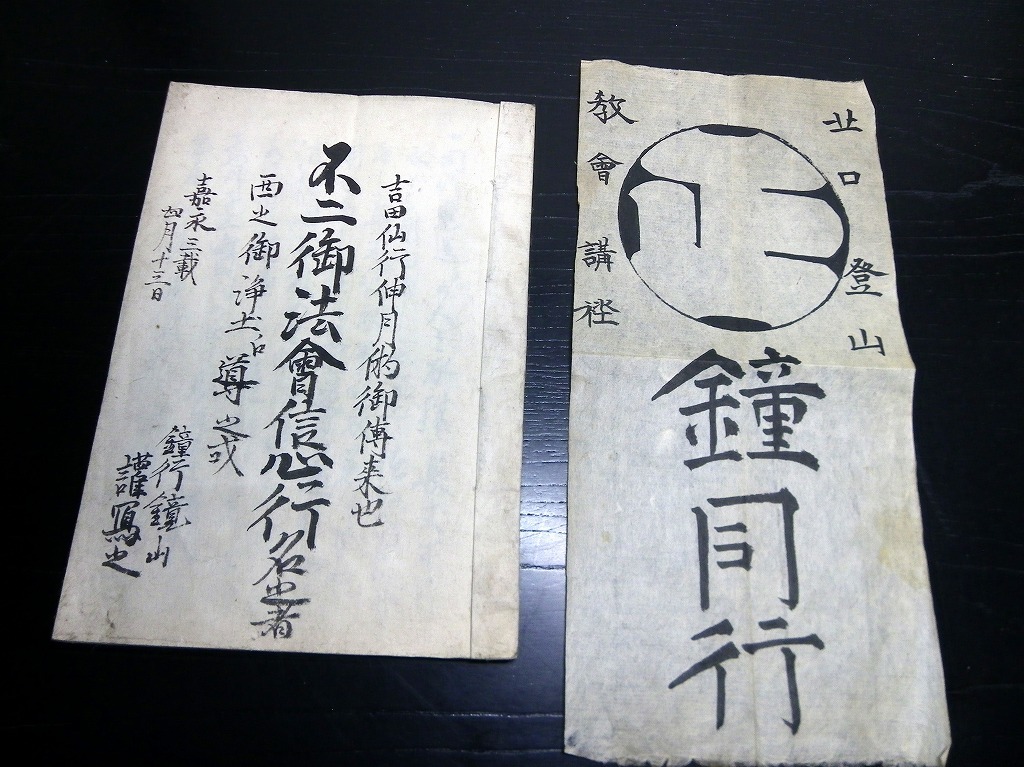 吉田仙行伸月䏻御傳来也
不二御法會信心行名之者
西之御浄土ゟ導之或
嘉永三載
四月十三日
鐘行鐘山
謹寫之
北口登山
正
教會講社
鐘同行